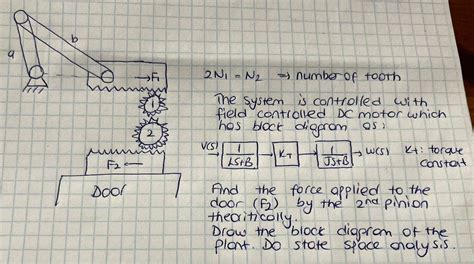 a
b
→F1
1
2
F2 ←
DOOR
2N1 = N2 ⇒ number of tooth
The system is controlled with
field controlled DC motor which
has block diagram as:
V(s)
1
LS+B
KT
1
JS+B
→ W(s)
KT: torque
constant
Find the force applied to the
door (F2) by the 2nd pinion
theoritically.
Draw the block diagram of the
plant. Do state space analysis.